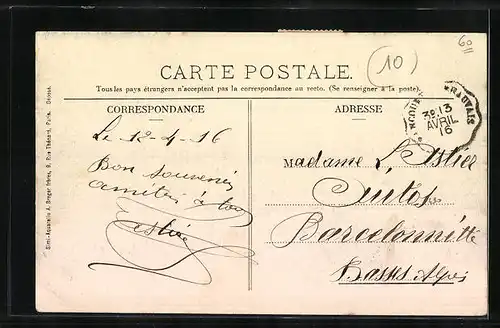 60
(10)
CARTE POSTALE.
Tous les pays étrangers n'acceptent pas la correspondance au recto. (Se renseigner à la poste.)
CORRESPONDANCE
ADRESSE
13
AVRIL
Le 12-4-16
Bon souvenir
amitiés à
Madame L.
Autos
Barcelonnitte
Basses Alpes
Simili-Aquarelle A. Breger frères, 9, Rue Thénard, Paris. Déposé.